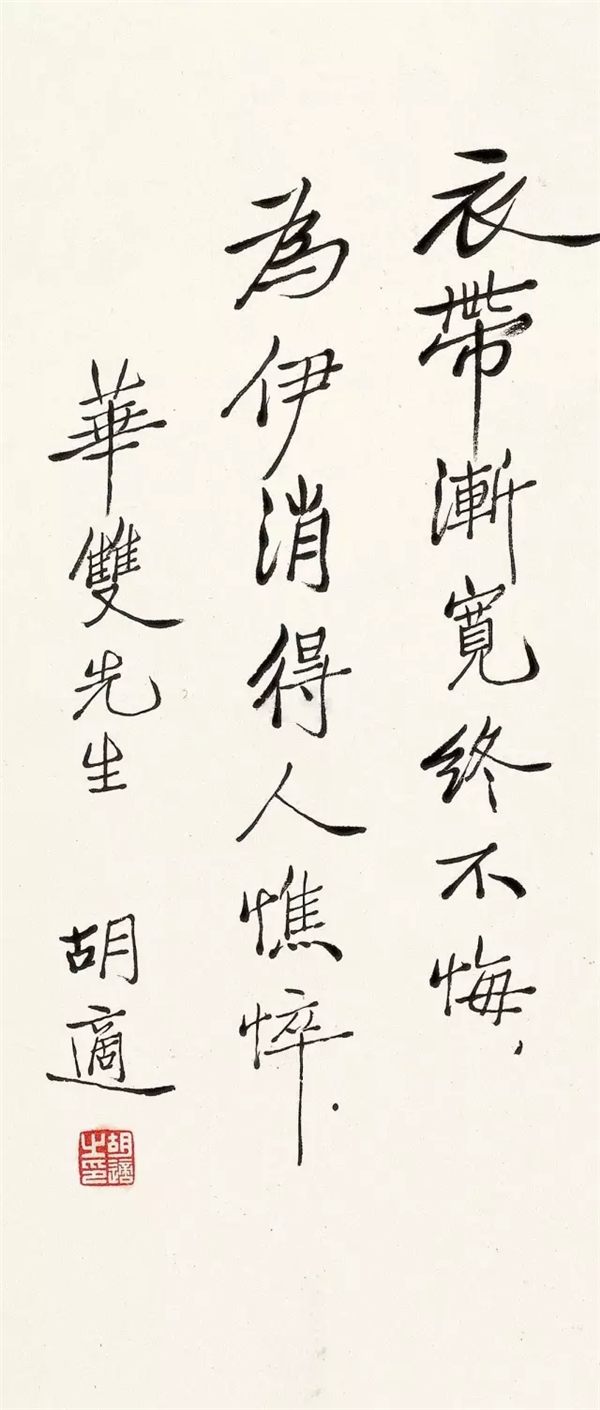 衣帶漸寬終不悔，
為伊消得人憔悴．
華雙先生
胡適
胡適之印